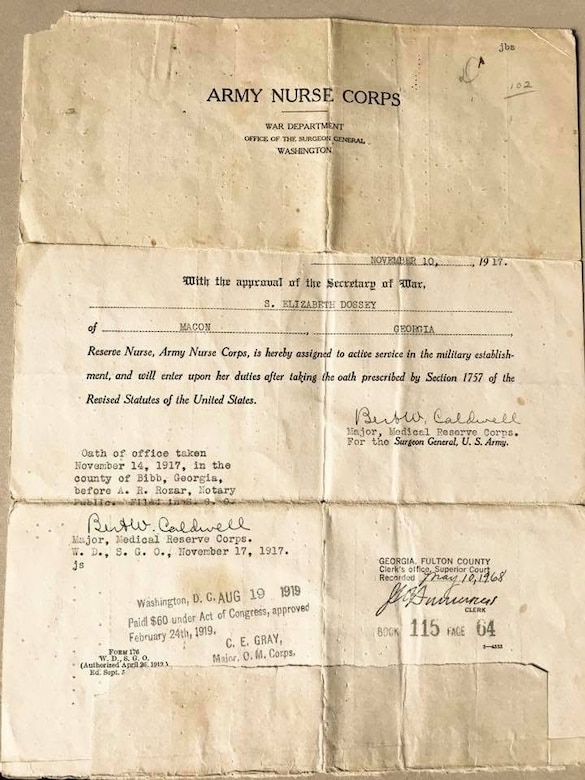 jba
102
ARMY NURSE CORPS
WAR DEPARTMENT
OFFICE OF THE SURGEON GENERAL
WASHINGTON
NOVEMBER 10, 1917.
With the approval of the Secretary of War,
S. ELIZABETH DOSSEY
of MACON, GEORGIA
Reserve Nurse, Army Nurse Corps, is hereby assigned to active service in the military establish-
ment, and will enter upon her duties after taking the oath prescribed by Section 1757 of the
Revised Statutes of the United States.
Bert W. Caldwell
Major, Medical Reserve Corps.
For the Surgeon General, U. S. Army.
Oath of office taken
November 14, 1917, in the
county of Bibb, Georgia,
before A. R. Rozar, Notary
Public. Filed in S. G. O.
Bert W. Caldwell
Major, Medical Reserve Corps.
W. D., S. G. O., November 17, 1917.
js
Washington, D. C. AUG 19 1919
Paid $60 under Act of Congress, approved
February 24th, 1919.
C. E. GRAY,
Major, Q. M. Corps.
FORM 176
W. D., S. G. O.
(Authorized April 26, 1912.)
Ed. Sept.
GEORGIA, FULTON COUNTY
Clerk's office, Superior Court
Recorded May 10, 1968
CLERK
BOOK 115 PAGE 64